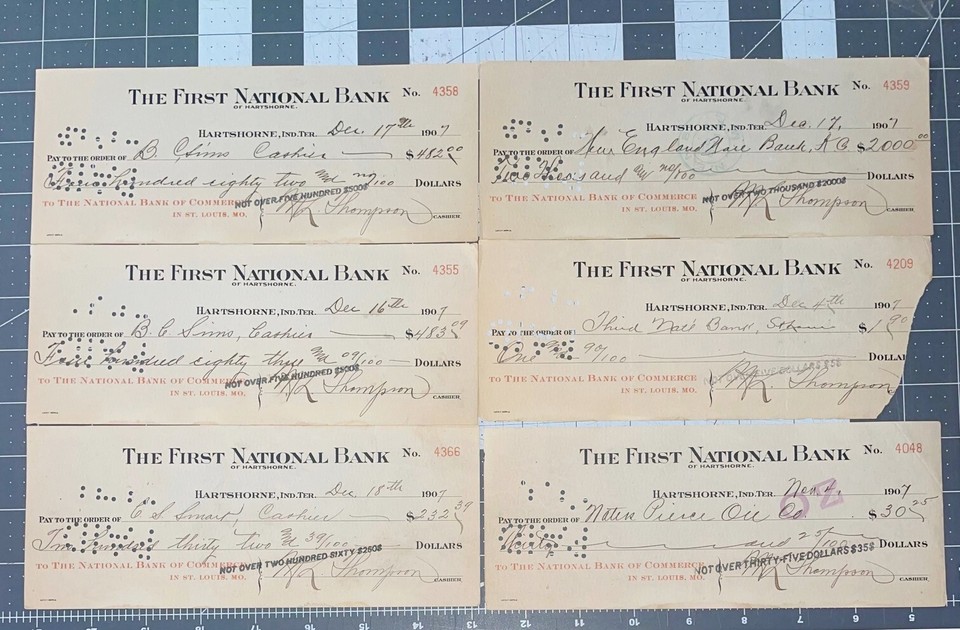 THE FIRST NATIONAL BANK No. 4358
OF HARTSHORNE.
HARTSHORNE, IND. TER. Dec. 17th 1907
PAY TO THE ORDER OF B. C. Sims Cashier $482 00
Four hundred eighty two and no/100 DOLLARS
NOT OVER FIVE HUNDRED $500$
TO THE NATIONAL BANK OF COMMERCE
IN ST. LOUIS, MO. Thompson CASHIER
THE FIRST NATIONAL BANK No. 4359
OF HARTSHORNE.
HARTSHORNE, IND. TER. Dec. 17, 1907
PAY TO THE ORDER OF New England Bank, $2000 00
Two Thousand and no/100 DOLLARS
NOT OVER TWO THOUSAND $2000$
TO THE NATIONAL BANK OF COMMERCE
IN ST. LOUIS, MO. Thompson CASHIER
THE FIRST NATIONAL BANK No. 4355
OF HARTSHORNE.
HARTSHORNE, IND. TER. Dec 16th 1907
PAY TO THE ORDER OF B. C Sims, Cashier $483 09
Four hundred eighty three and 09/100 DOLLARS
NOT OVER FIVE HUNDRED $500$
TO THE NATIONAL BANK OF COMMERCE
IN ST. LOUIS, MO. Thompson CASHIER
THE FIRST NATIONAL BANK No. 4209
OF HARTSHORNE.
HARTSHORNE, IND. TER. Dec 4th 1907
PAY TO THE ORDER OF Third Nat'l Bank, $1 90
One and 90/100 DOLLAR
NOT OVER FIVE DOLLARS $5$
TO THE NATIONAL BANK OF COMMERCE
IN ST. LOUIS, MO. Thompson
THE FIRST NATIONAL BANK No. 4366
OF HARTSHORNE.
HARTSHORNE, IND. TER. Dec. 18th 1907
PAY TO THE ORDER OF E S. Smart, Cashier $232 39
Two hundred thirty two and 39/100 DOLLARS
NOT OVER TWO HUNDRED SIXTY $260$
TO THE NATIONAL BANK OF COMMERCE
IN ST. LOUIS, MO. Thompson CASHIER
THE FIRST NATIONAL BANK No. 4048
OF HARTSHORNE.
HARTSHORNE, IND. TER. Nov. 4, 1907
PAY TO THE ORDER OF Waters Pierce Oil Co $30 25
and 25/100 DOLLARS
NOT OVER THIRTY-FIVE DOLLARS $35$
TO THE NATIONAL BANK OF COMMERCE
IN ST. LOUIS, MO. Thompson CASHIER
17 16 15 14 13 12 11 10 9 8 7 6 5